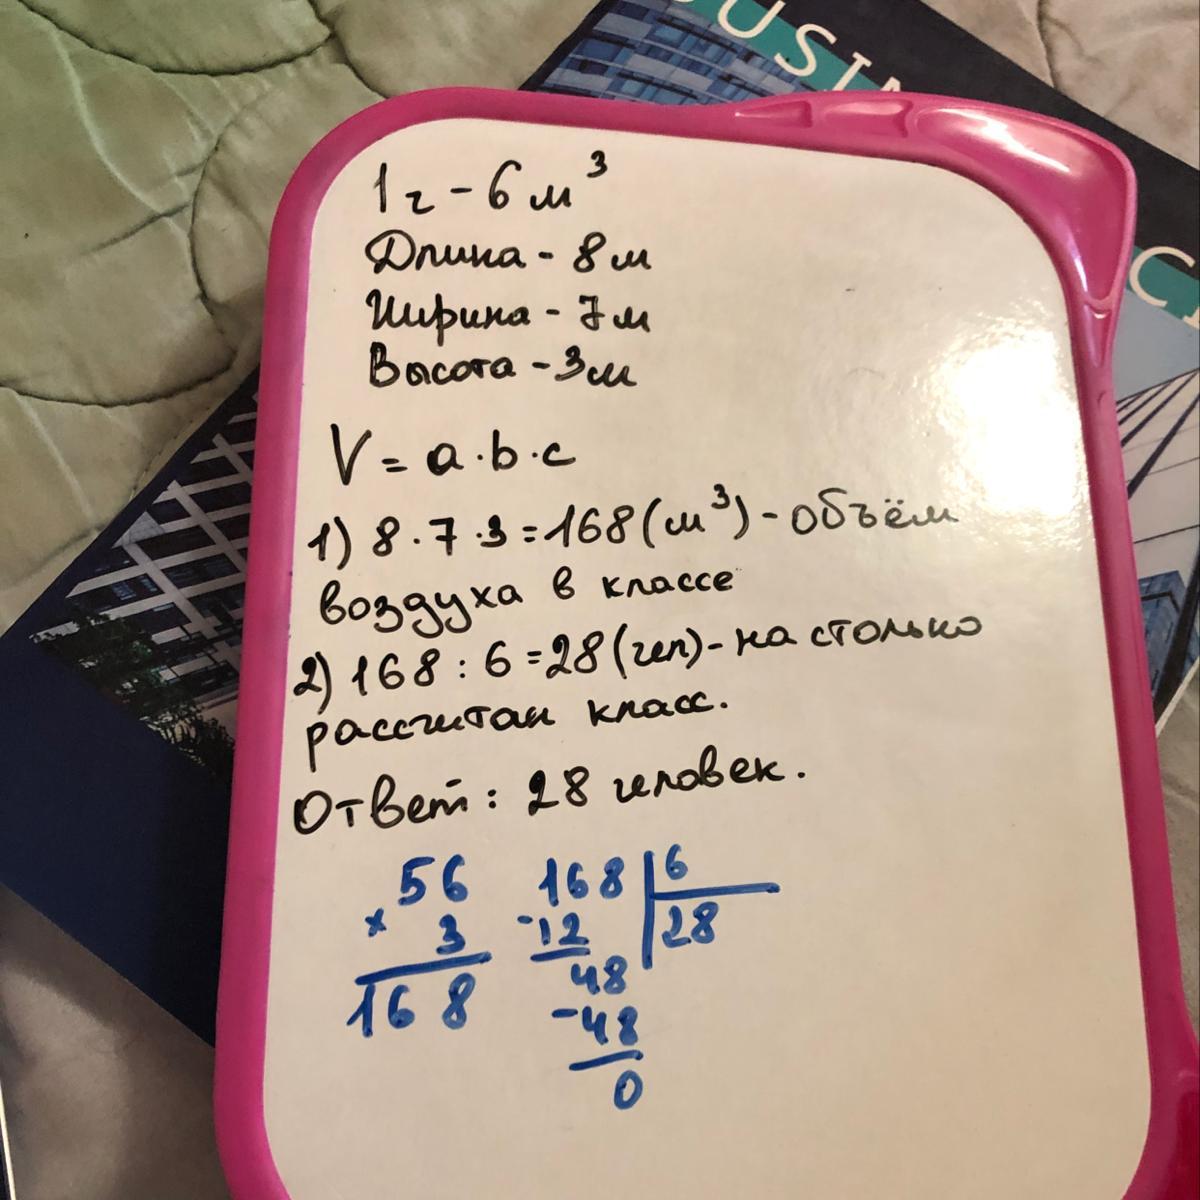 BUSIN
C
1 ч - 6 м³
Длина - 8 м
Ширина - 7 м
Высота - 3 м
V = a · b · c
1) 8 · 7 · 3 = 168 (м³) - объём
воздуха в классе
2) 168 : 6 = 28 (чел) - на столько
рассчитан класс.
Ответ: 28 человек.
56
× 3
168
168 | 6
-12 | 28
48
-48
0